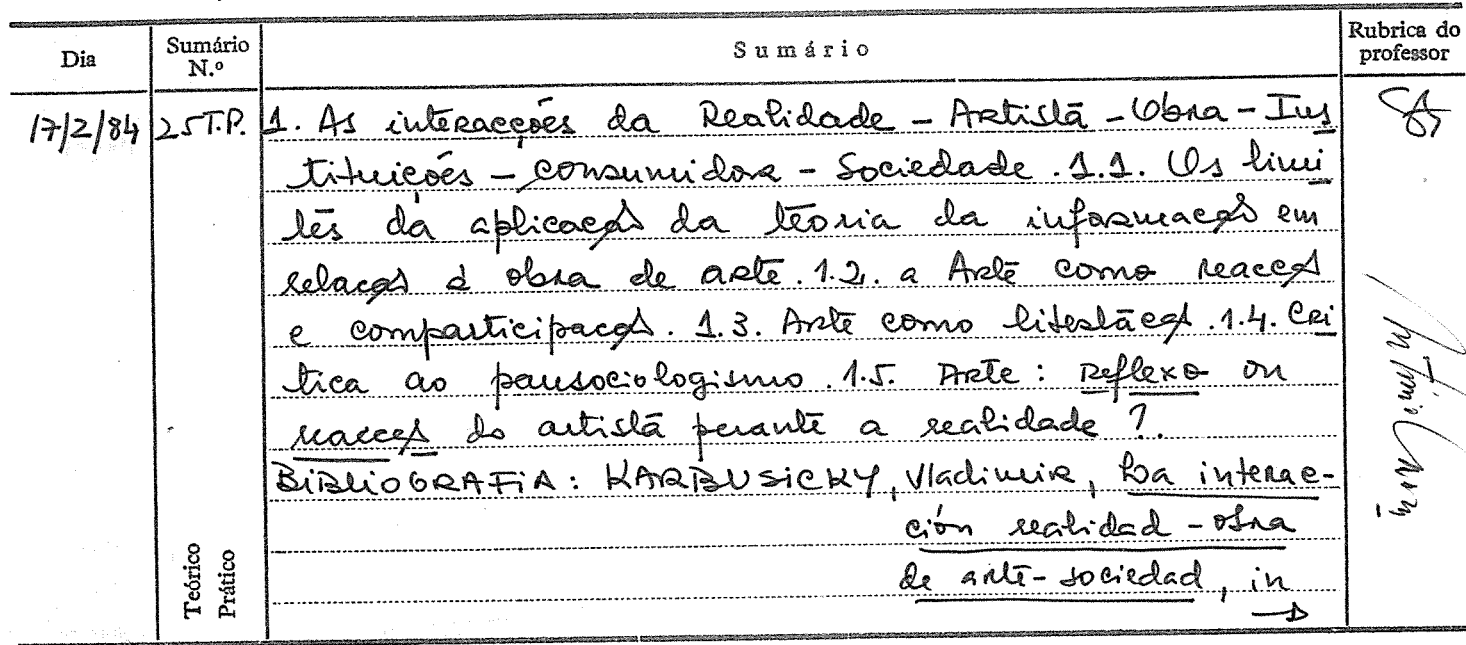 Dia Sumário N.º Sumário Rubrica do professor
17/2/84 25 T.P. 1. As interacções da Realidade - Artista - Obra - Ins
tituições - consumidora - Sociedade. 1.1. Os limi
tes da aplicação da teoria da informação em
relação à obra de arte. 1.2. a Arte como reacção
e comparticipação. 1.3. Arte como libertação. 1.4. Crí
tica ao pansociologismo. 1.5. Arte: Reflexo ou
reacção do artista perante a realidade?
BIBLIOGRAFIA: KARBUSICKY, Vladimir, La interac-
ción realidad - obra
de arte - sociedad, in
→
Teórico
Prático